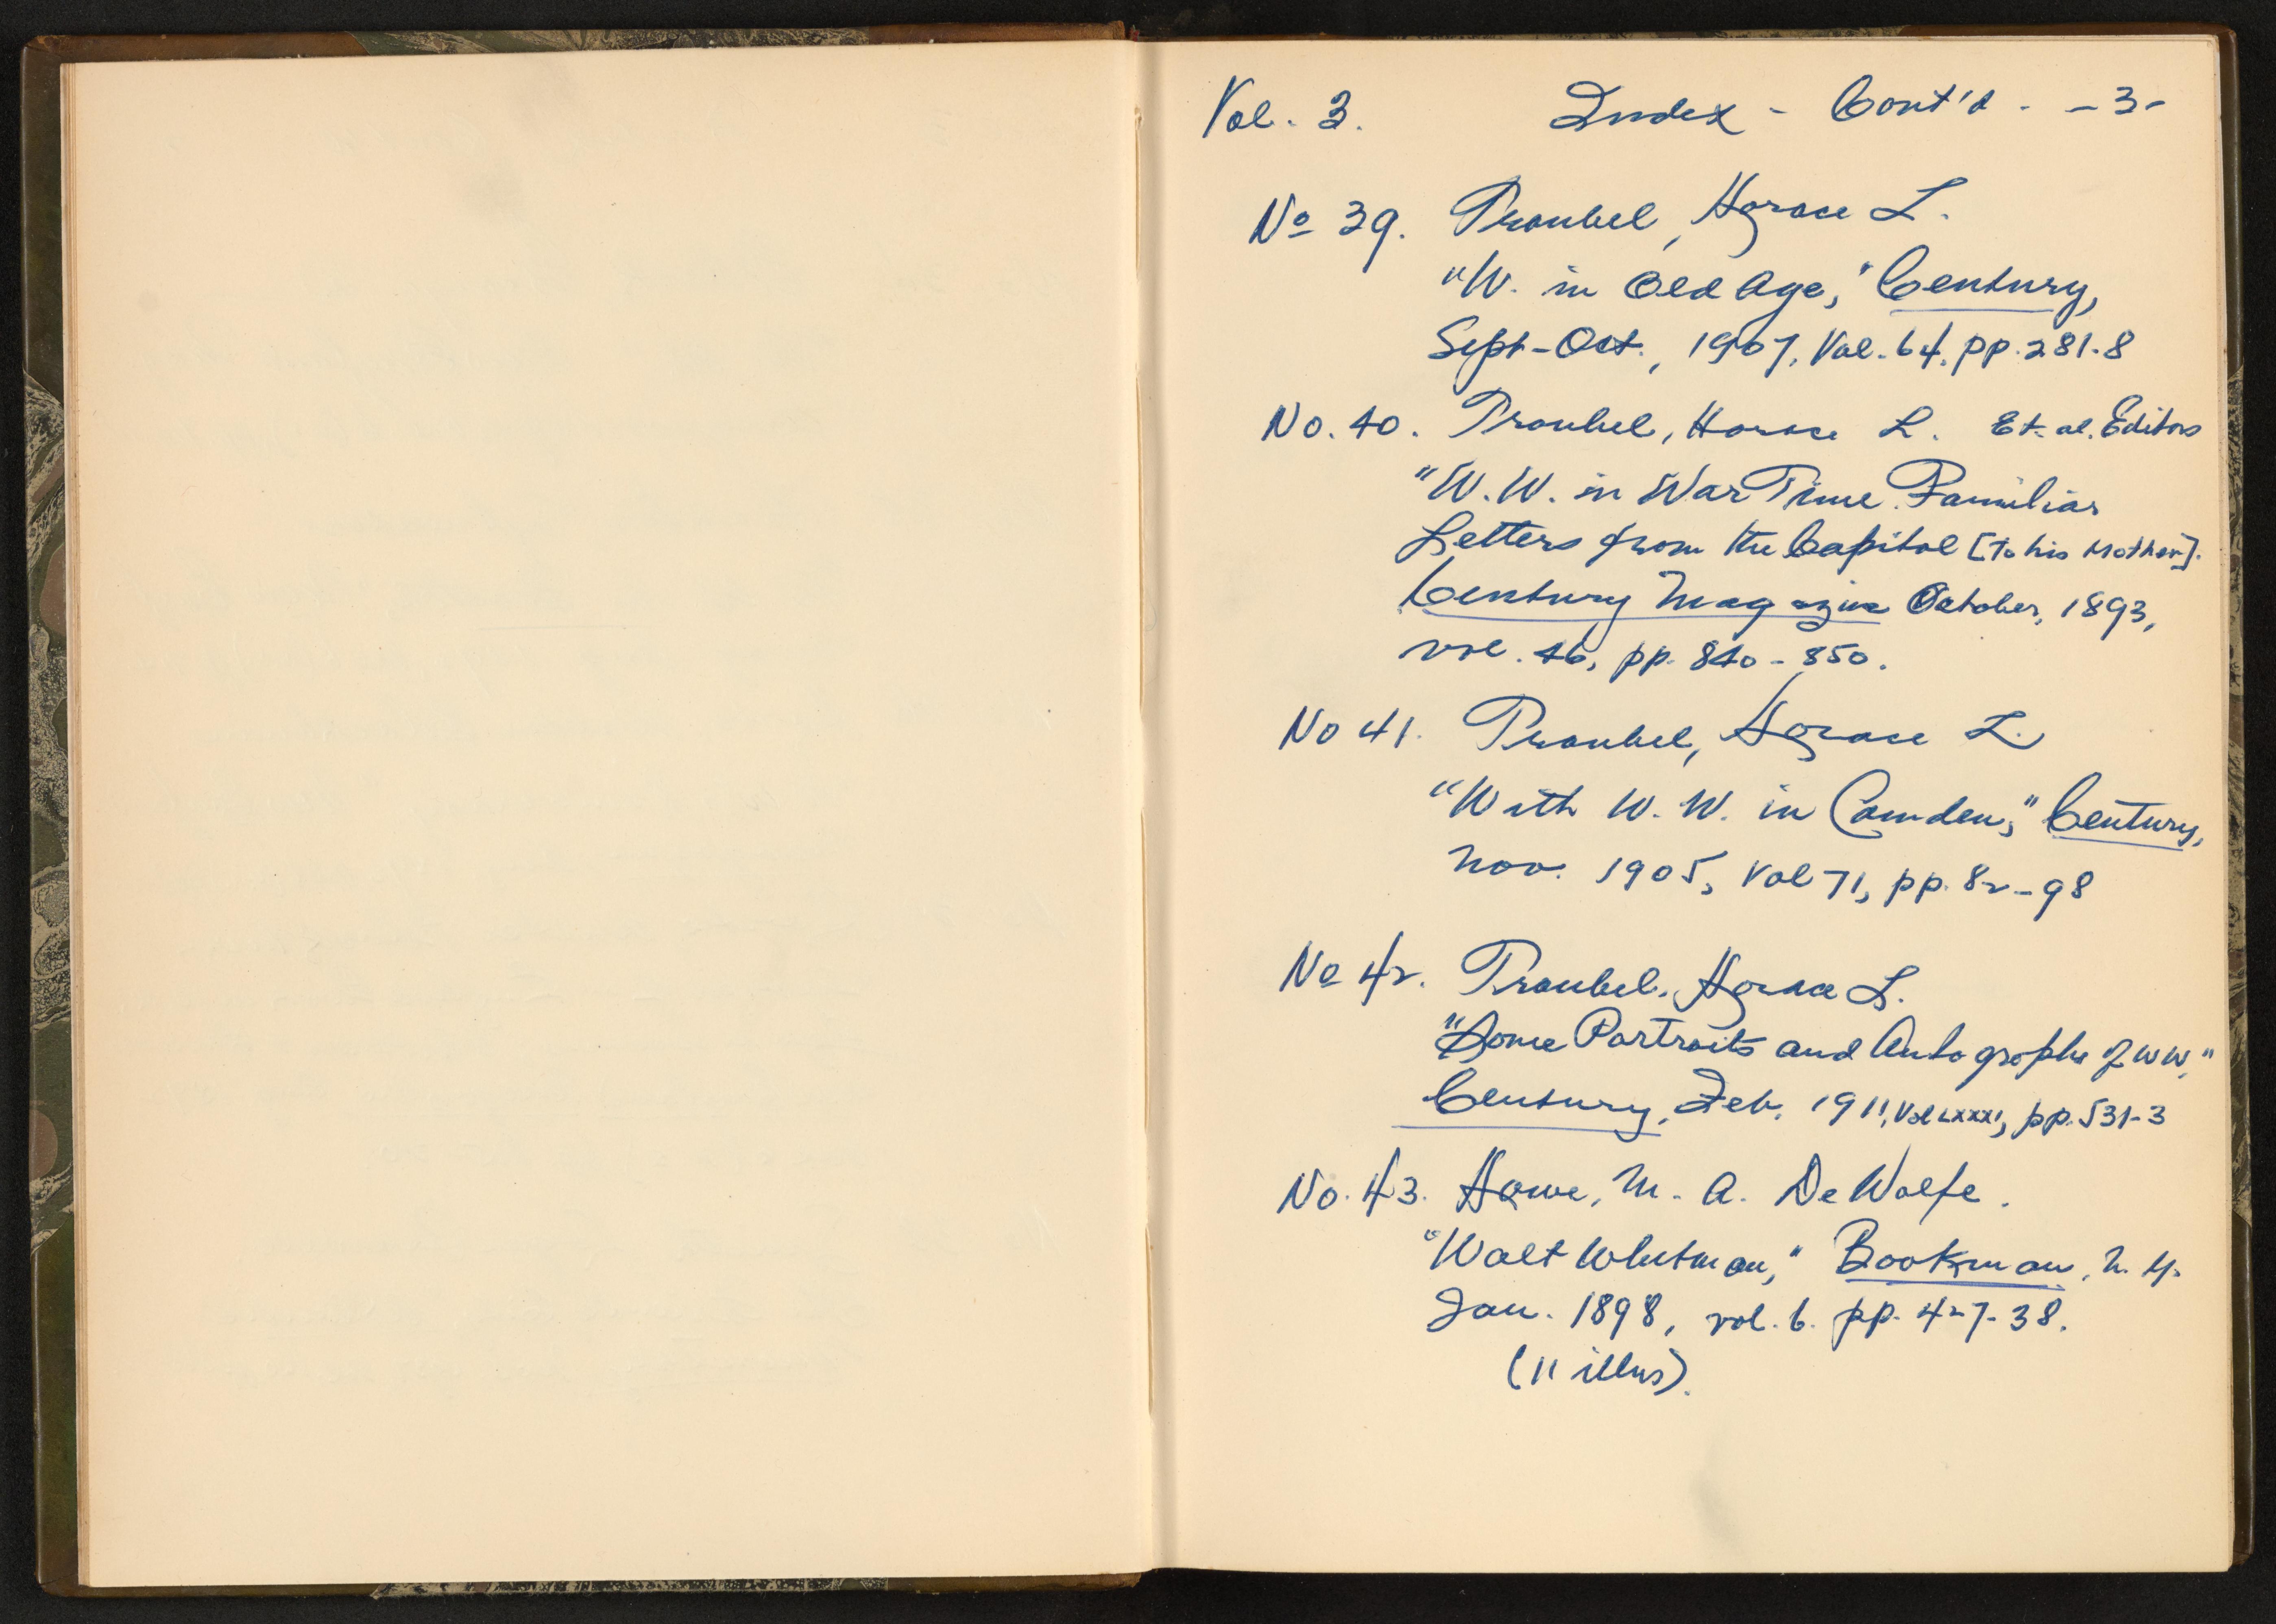 Vol. 3. Index - Cont'd - -3-
No 39. Traubel, Horace L.
"W. in Old Age," Century,
Sept-Oct., 1907, Vol. 64, pp. 281-8
No. 40. Traubel, Horace L. Et. al. Editors
"W. W. in War Time. Familiar
Letters from the Capital [to his Mother].
Century Magazine October, 1893,
vol. 46, pp. 840-850.
No 41. Traubel, Horace L.
"With W. W. in Camden," Century,
Nov. 1905, Vol 71, pp. 82-98
No 42. Traubel, Horace L.
"Some Portraits and Autographs of WW,"
Century, Feb, 1911, Vol LXXXI, pp. 531-3
No. 43. Howe, M. A. DeWolfe.
"Walt Whitman," Bookman, N. Y.
Jan. 1898, vol. 6. pp. 427-38.
(11 illus).